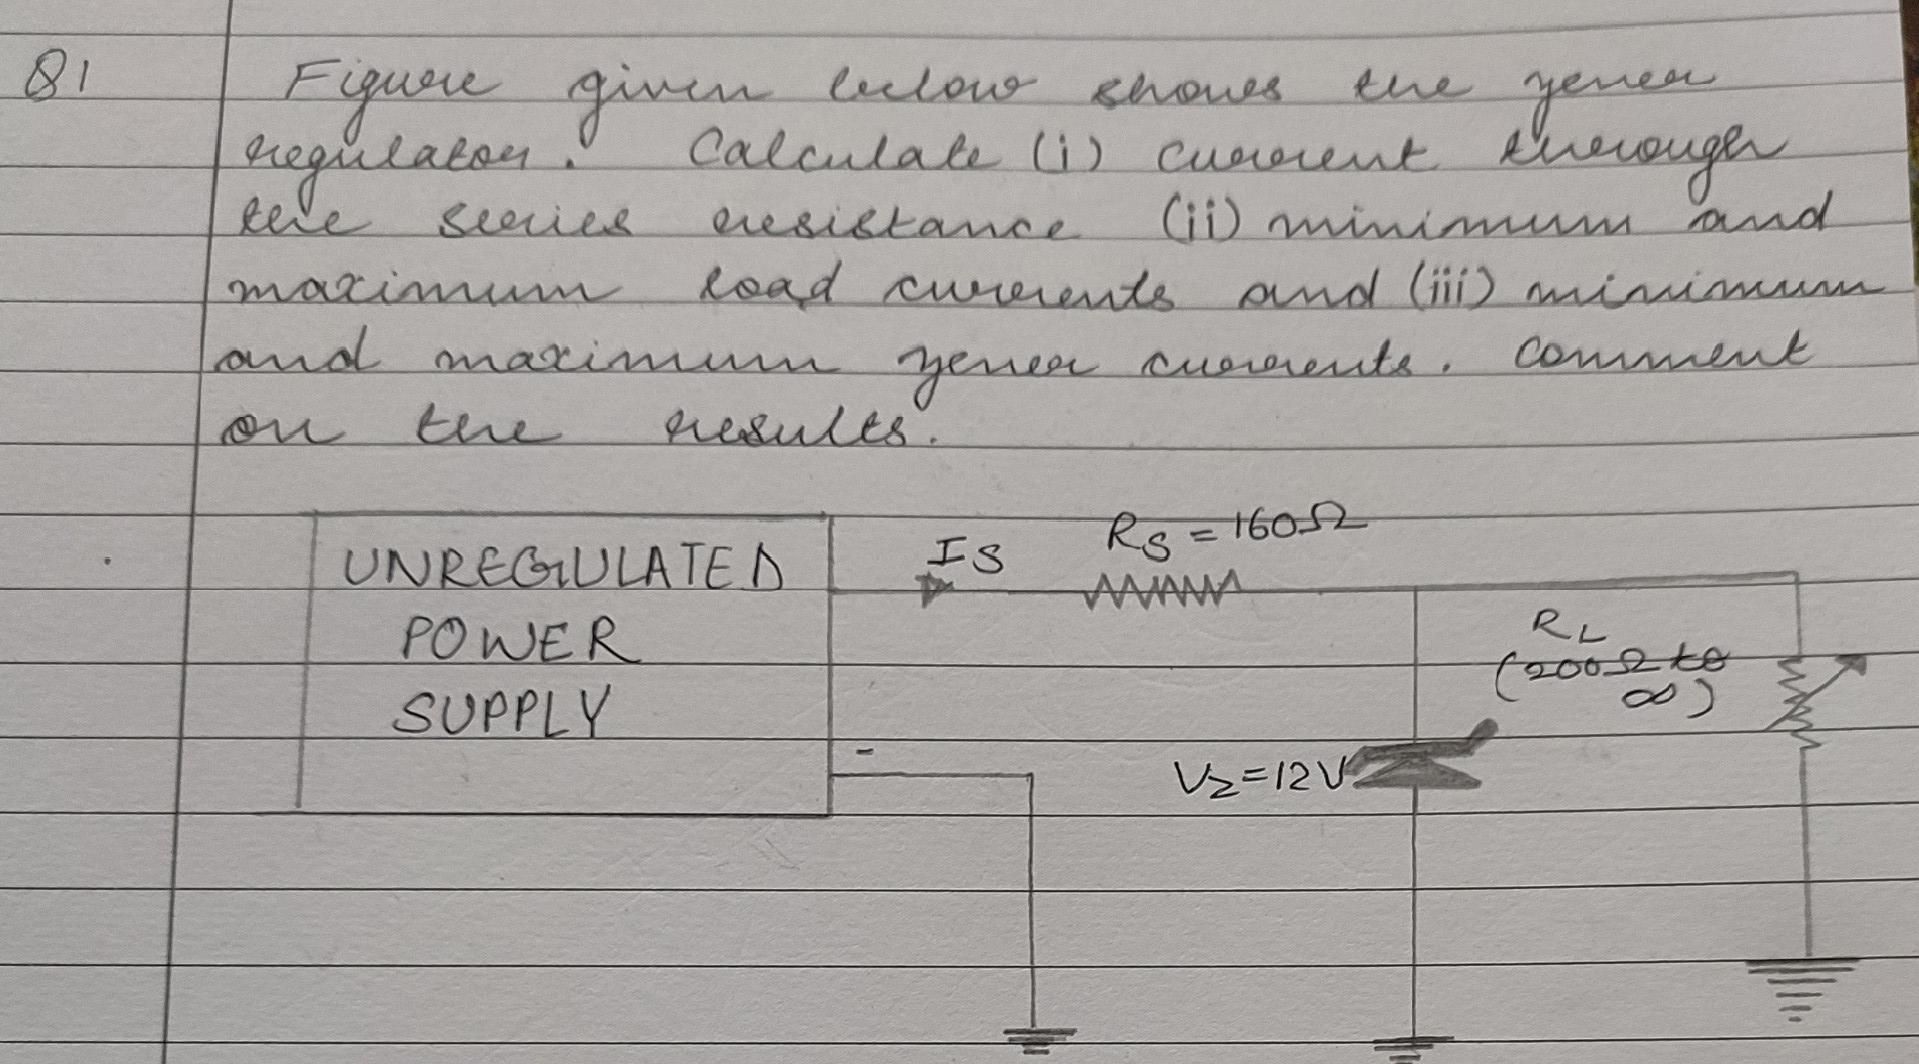 Q1
Figure given below shows the zener
regulator. Calculate (i) current through
the series resistance (ii) minimum and
maximum load currents and (iii) minimum
and maximum zener currents. Comment
on the results.
UNREGULATED
POWER
SUPPLY
-
IS
RS = 160Ω
RL
(200Ω to
∞)
VZ=12V